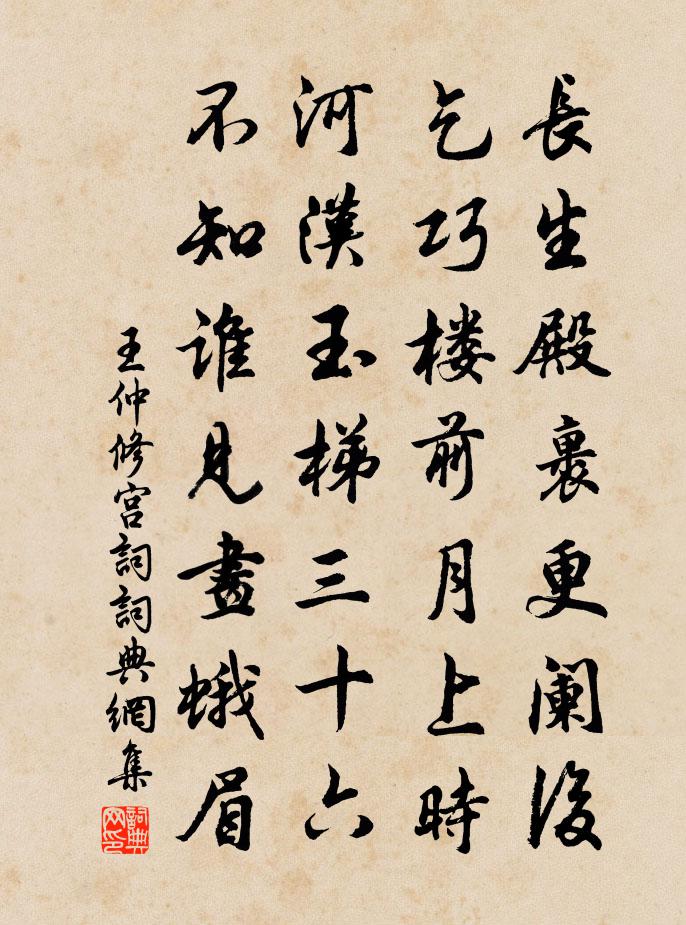 長生殿裏更阑後
乞巧楼前月上時
河漢玉梯三十六
不知誰見畫蛾眉
王仲修宫詞詞典網集
詞典网印